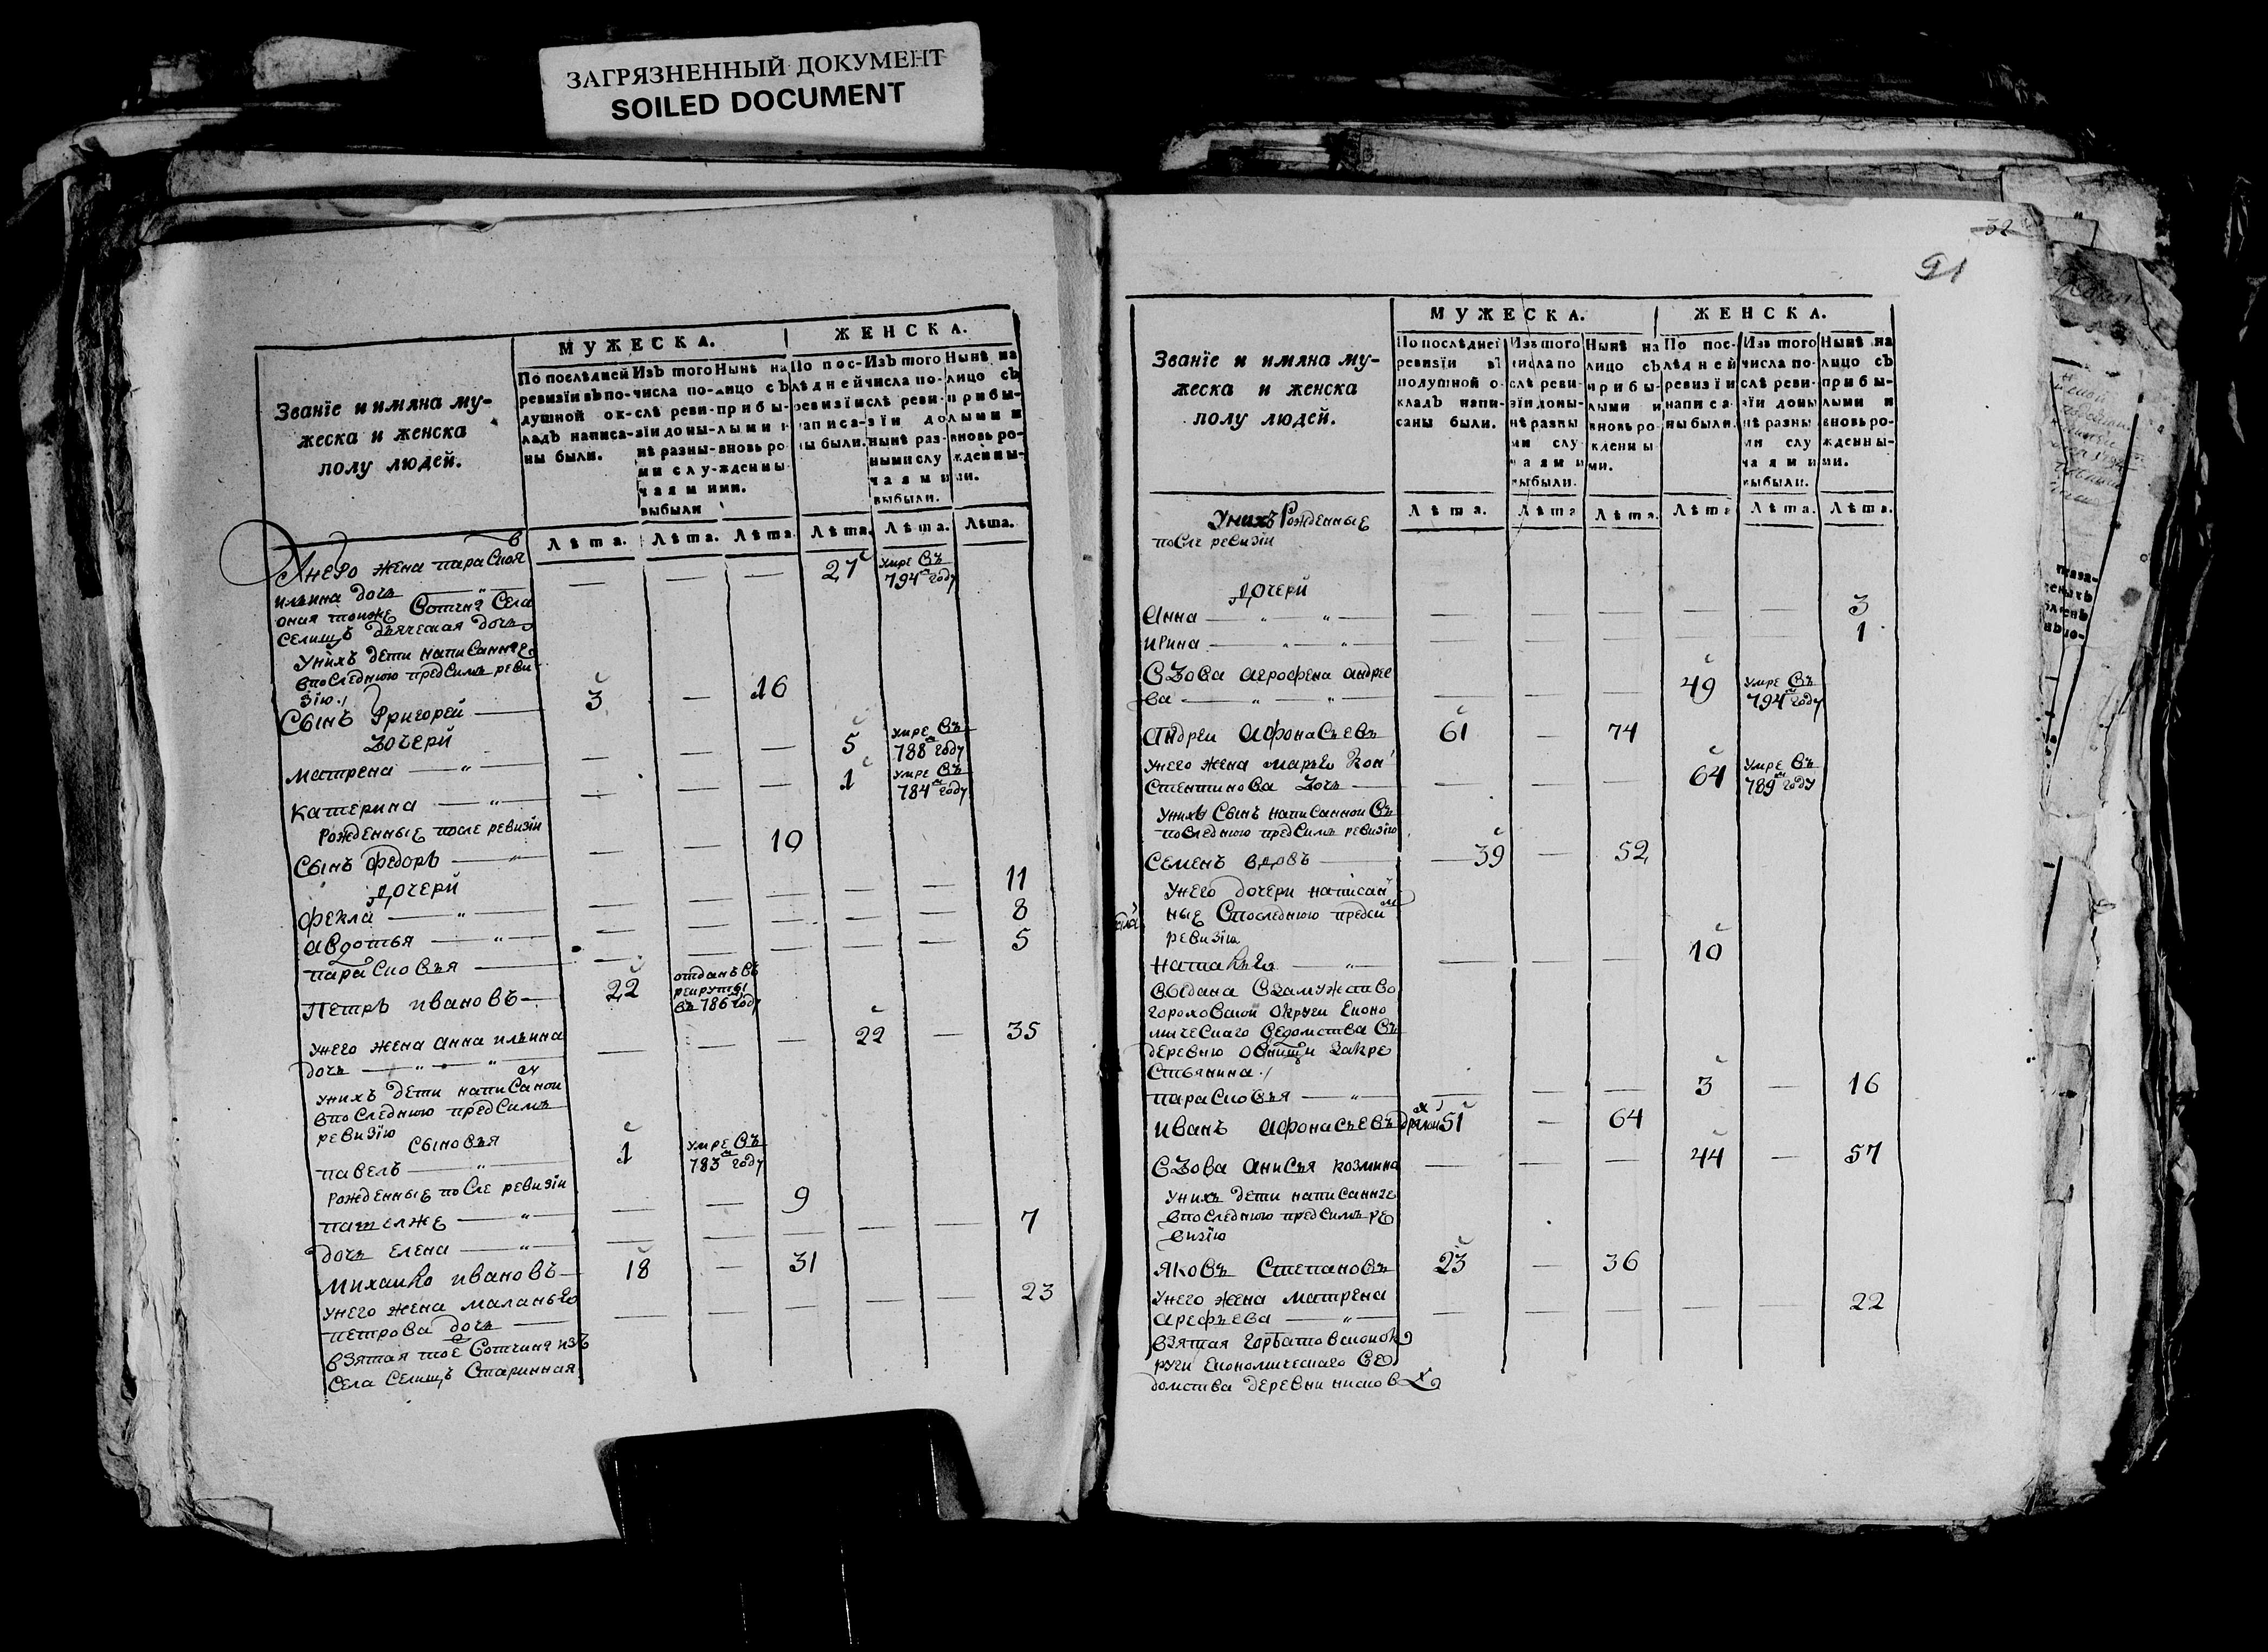 ЗАГРЯЗНЕННЫЙ ДОКУМЕНТ
SOILED DOCUMENT
Званїе и имяна му-
жеска и женска
полу людей.
МУЖЕСКА.
ЖЕНСКА.
По послѣдней ревизїи въ по-
душной ок-
ладъ написа-
ны были.
Изъ того
числа по-
слѣ реви-
зїи доны-
нѣ разны-
ми слу-
чаями
выбыли
Нынѣ на
лицо съ
прибы-
лыми и
вновь ро-
жденны-
ми.
По пос-
лѣдней
ревизїи
написа-
ны были.
Изъ того
числа по-
слѣ реви-
зїи до
нынѣ раз-
ными слу
чаями
выбыли.
Нынѣ на
лицо съ
прибы-
лыми и
вновь ро-
жденны-
ми.
Лѣта. Лѣта. Лѣта. Лѣта. Лѣта. Лѣта.
Унего жена парасковя
ильина дочь — — — 27 умре въ 794м году
оная тоиже вотчины села
селищъ дьяческая дочь
Унихъ дети написанные
впоследнюю предсимъ реви
зїю./
Сынъ Григорей — 3 — 16
дочери
матрена — — — — 5 умре въ 788м году
катерина — — — — 1 умре въ 784м году
рожденные после ревизїи
Сынъ федоръ — — — 10
дочери
фекла — — — — — — 11
авдотья — — — — — — 8
парасковья — — — — — — 5
Петръ ивановъ — 22 отданъ въ рекруты въ 786м году
унего жена анна ильина
дочь — — — — 22 — 35
унихъ дети написанои
впоследнюю предсимъ
ревизїю
сыновья
павелъ — 1 умре въ 783м году
рожденные после ревизїи
павелже — — — 9
дочь елена — — — — — — 7
михаико ивановъ — 18 — 31
унего жена маланья
петрова дочь — — — — — — 23
взятая тое вотчины изъ
села селищъ старинная
32
91
Званїе и имяна му-
жеска и женска
полу людей.
МУЖЕСКА.
ЖЕНСКА.
По послѣдней
ревизїи въ
подушной о-
кладъ напи-
саны были.
Изъ того
числа по
слѣ реви-
зїи доны-
нѣ разны
ми слу-
чаями
выбыли.
Нынѣ на
лицо съ
прибы-
лыми и
вновь ро-
жденны
ми.
По пос-
лѣдней
ревизїи
написа-
ны были.
Изъ того
числа по-
слѣ реви-
зїи доны
нѣ разны
ми слу
чаями
выбыли.
Нынѣ на
лицо съ
прибы-
лыми и
вновь ро-
жденны-
ми.
Лѣта. Лѣта Лѣта. Лѣта Лѣта. Лѣта.
Унихъ Рожденные
после ревизїи
дочери
Анна — — — — — — 3
ирина — — — — — — 1
вдова агрофена андрее
ва — — — — 49 умре въ 794м году
Андреи афонасьевъ 61 — 74
унего жена марья кон
стентинова дочь — — — — 64 умре въ 789м году
унихъ сынъ написаннои въ
последнюю предсимъ ревизїю
семенъ вдовъ — 39 — 52
унего дочери написан
ные впоследнюю предси
ревизїю
наталья — — — — 10
выдана взамужство
гороховскои округи еконо
мическаго ведомства въ
деревню овнищи закре
стьянина./
парасковья — — — — 3 — 16
иванъ афонасьевъ 51 — 64
вдова анисья козмина — — — 44 — 57
унихъ дети написанные
впоследнюю предсимъ ре
визїю
яковъ степановъ 23 — 36
унего жена матрена
арефьева — — — — — — 22
взятая горбатовскои ок
руги економическаго ве
домства деревни